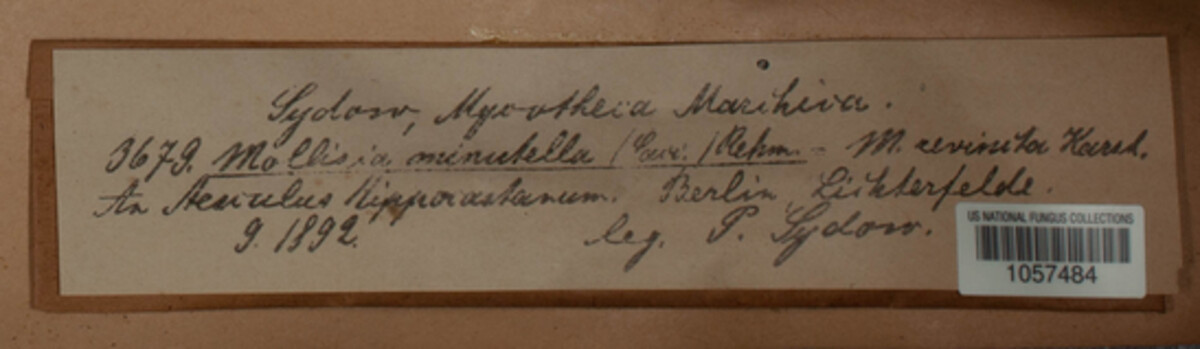 Sydow, Mycotheca Marchica.
3679. Mollisia minutella (Sacc.) Rehm. - M. revincta Karst.
An Aesculus Hippocastanum. Berlin, Lichterfelde.
9. 1892. leg. P. Sydow.
US NATIONAL FUNGUS COLLECTIONS
1057484